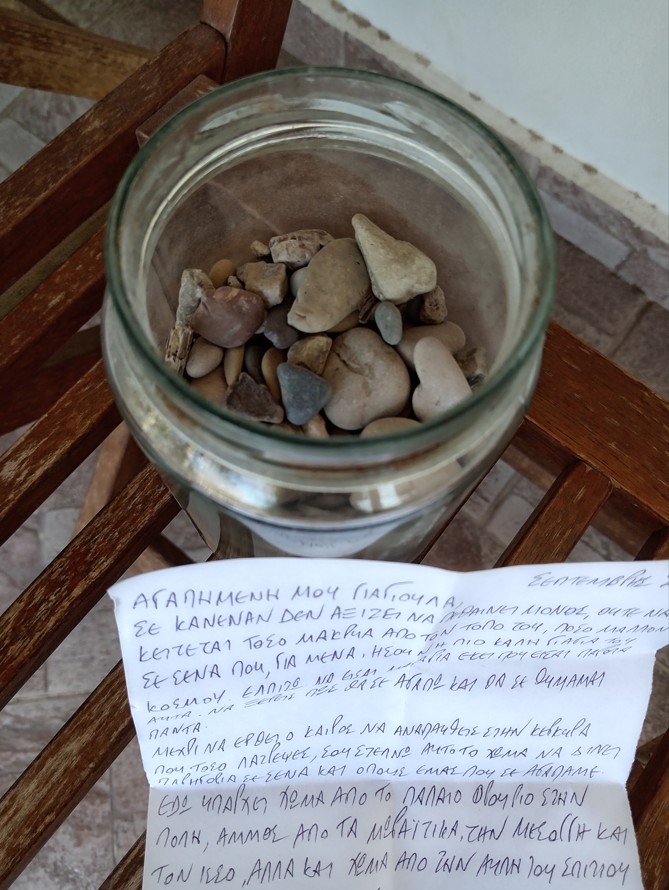 ΣΕΠΤΕΜΒΡΙΟΣ 2
ΑΓΑΠΗΜΕΝΗ ΜΟΥ ΓΙΑΓΙΟΥΛΑ,
ΣΕ ΚΑΝΕΝΑΝ ΔΕΝ ΑΞΙΖΕΙ ΝΑ ΠΕΘΑΙΝΕΙ ΜΟΝΟΣ, ΟΥΤΕ ΝΑ
ΚΕΙΤΕΤΑΙ ΤΟΣΟ ΜΑΚΡΙΑ ΑΠΟ ΤΟΝ ΤΟΠΟ ΤΟΥ, ΠΟΣΟ ΜΑΛΛΟΝ
ΣΕ ΣΕΝΑ ΠΟΥ, ΓΙΑ ΜΕΝΑ, ΗΣΟΥΝ Η ΠΙΟ ΚΑΛΗ ΓΙΑΓΙΑ ΤΟΥ
ΚΟΣΜΟΥ. ΕΛΠΙΖΩ ΝΑ ΕΙΣΑΙ ΕΚΕΙ ΠΟΥ ΕΙΣΑΙ
ΑΥΤΑ. ΝΑ ΞΕΡΕΙΣ ΠΩΣ ΘΑ ΣΕ ΑΓΑΠΩ ΚΑΙ ΘΑ ΣΕ ΘΥΜΑΜΑΙ
ΠΑΝΤΑ.
ΜΕΧΡΙ ΝΑ ΕΡΘΕΙ Ο ΚΑΙΡΟΣ ΝΑ ΑΝΑΠΑΥΘΕΙΣ ΣΤΗΝ ΚΕΡΚΥΡΑ
ΠΟΥ ΤΟΣΟ ΛΑΤΡΕΨΕΣ, ΣΟΥ ΣΤΕΛΝΩ ΑΥΤΟ ΤΟ ΧΩΜΑ ΝΑ ΔΙΝΕΙ
ΠΑΡΗΓΟΡΙΑ ΣΕ ΣΕΝΑ ΚΑΙ ΟΛΟΥΣ ΕΜΑΣ ΠΟΥ ΣΕ ΑΓΑΠΑΜΕ.
ΕΔΩ ΥΠΑΡΧΕΙ ΧΩΜΑ ΑΠΟ ΤΟ ΠΑΛΑΙΟ ΦΡΟΥΡΙΟ ΣΤΗΝ
ΠΟΛΗ, ΑΜΜΟΣ ΑΠΟ ΤΑ ΜΩΡΑΪΤΙΚΑ, ΤΗΝ ΜΕΣΟΓΓΗ ΚΑΙ
ΤΟΝ ΙΣΣΟ, ΑΛΛΑ ΚΑΙ ΧΩΜΑ ΑΠΟ ΤΗΝ ΑΥΛΗ ΤΟΥ ΣΠΙΤΙΟΥ